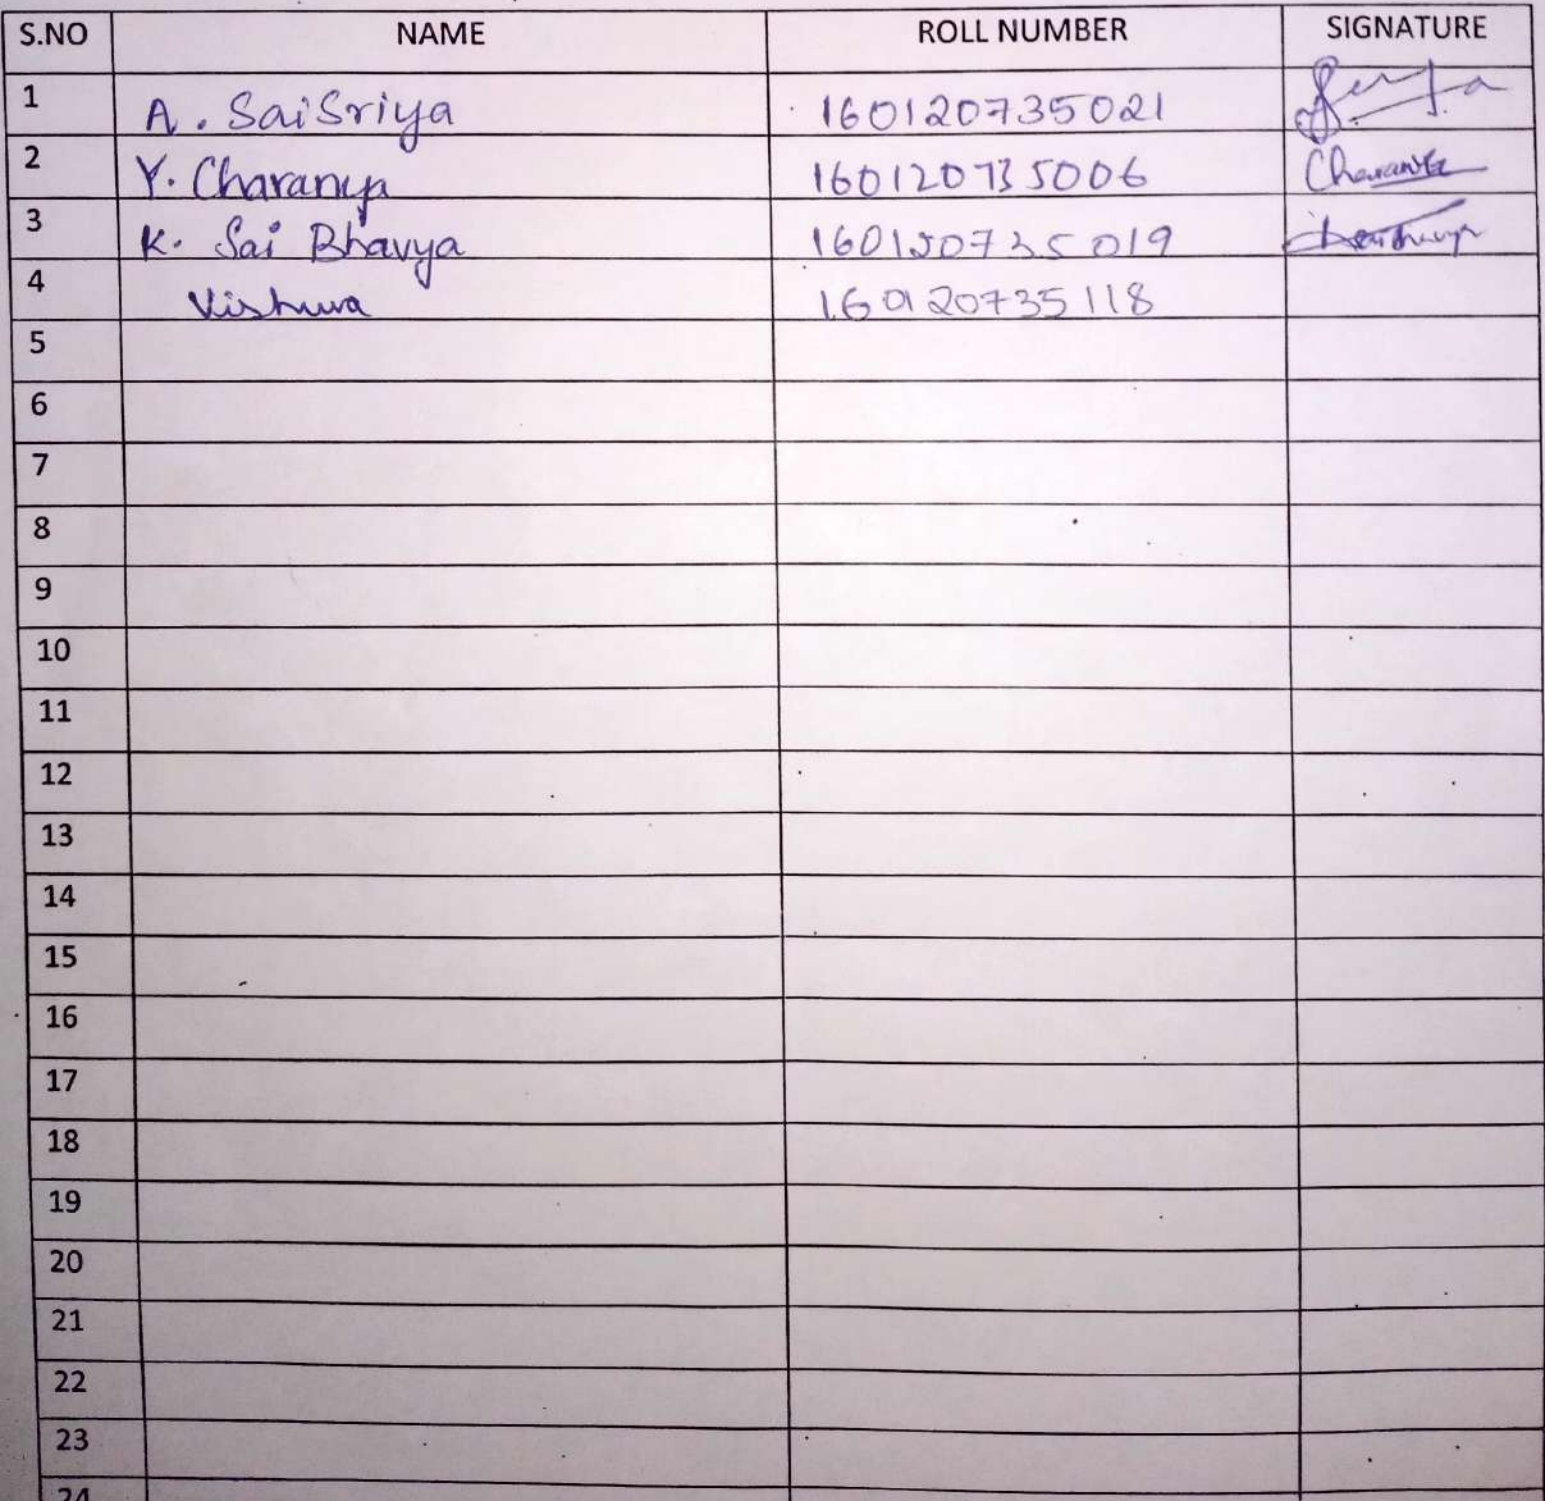 S.NO NAME ROLL NUMBER SIGNATURE
1 A. SaiSriya 160120735021
2 Y. Charanya 160120735006 Charanya
3 K. Sai Bhavya 160120735019
4 Vishwa 160120735118
5
6
7
8
9
10
11
12
13
14
15
16
17
18
19
20
21
22
23
24